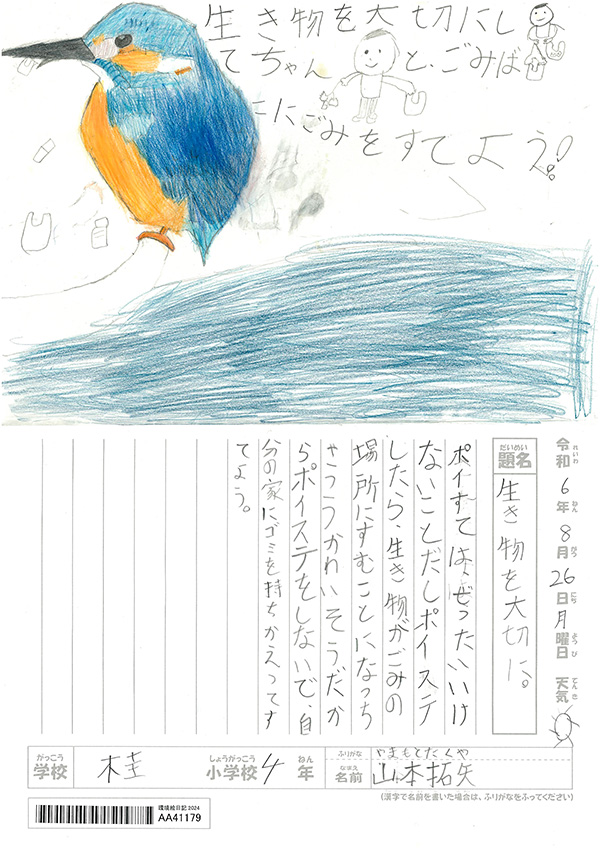 生き物を大切にし
てちゃんと、ごみば
こにごみをすてよう!
令和6年8月26日月曜日 天気
れいわ ねん がつ にち ようび てんき
だいめい
題名
生き物を大切に。
ポイすては、ぜったいいけ
ないことだしポイステ
したら、生き物がごみの
場所にすむことになっち
ゃうのうかわいそうだか
らポイステをしないで、自
分の家にゴミを持ちかえってす
てよう。
がっこう
学校
桂
しょうがっこう
小学校
4
ねん
年
ふりがな
やまもとたくや
なまえ
名前
山本拓矢
(漢字で名前を書いた場合は、ふりがなをふってください)
環境絵日記2024
AA41179